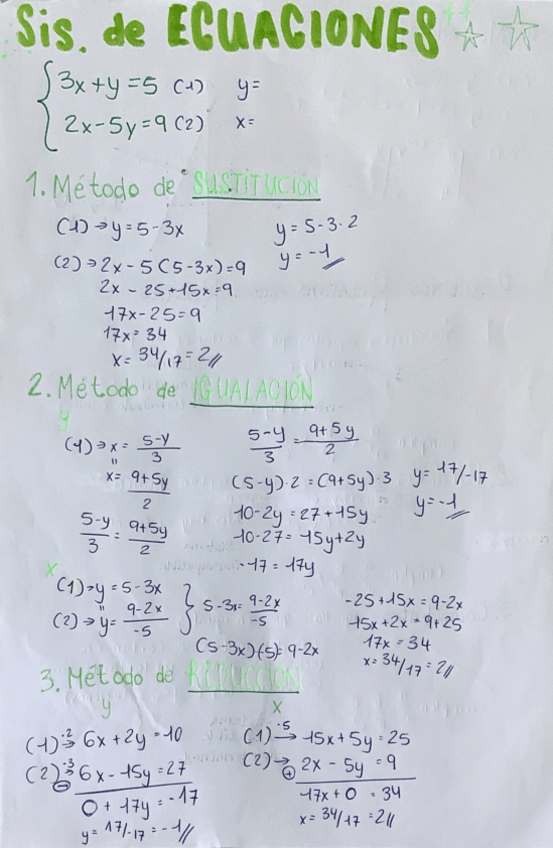 Sis. de ECUACIONES
3x+y=5 (1) y=
2x-5y=9 (2) x=
1. Método de SUSTITUCIÓN
(1)→y=5-3x
y=5-3·2
y=-1
(2)→2x-5(5-3x)=9
2x-25+15x=9
17x-25=9
17x=34
x=34/17=2
2. Método de IGUALACIÓN
y
(1)→x=5-y/3
"
x=9+5y/2
5-y/3=9+5y/2
5-y/3=9+5y/2
(5-y)·2=(9+5y)·3
10-2y=27+15y
10-27=15y+2y
-17=17y
y=17/-17
y=-1
x
(1)→y=5-3x
"
(2)→y=9-2x/-5
} 5-3x=9-2x/-5
(5-3x)·(-5)=9-2x
-25+15x=9-2x
15x+2x=9+25
17x=34
x=34/17=2
3. Método de REDUCCIÓN
y
(1)·2→6x+2y=10
(2)·3→6x-15y=27
⊖
0+17y=-17
y=17/-17=-1
x
(1)·5→15x+5y=25
(2)→2x-5y=9
⊕
17x+0=34
x=34/17=2